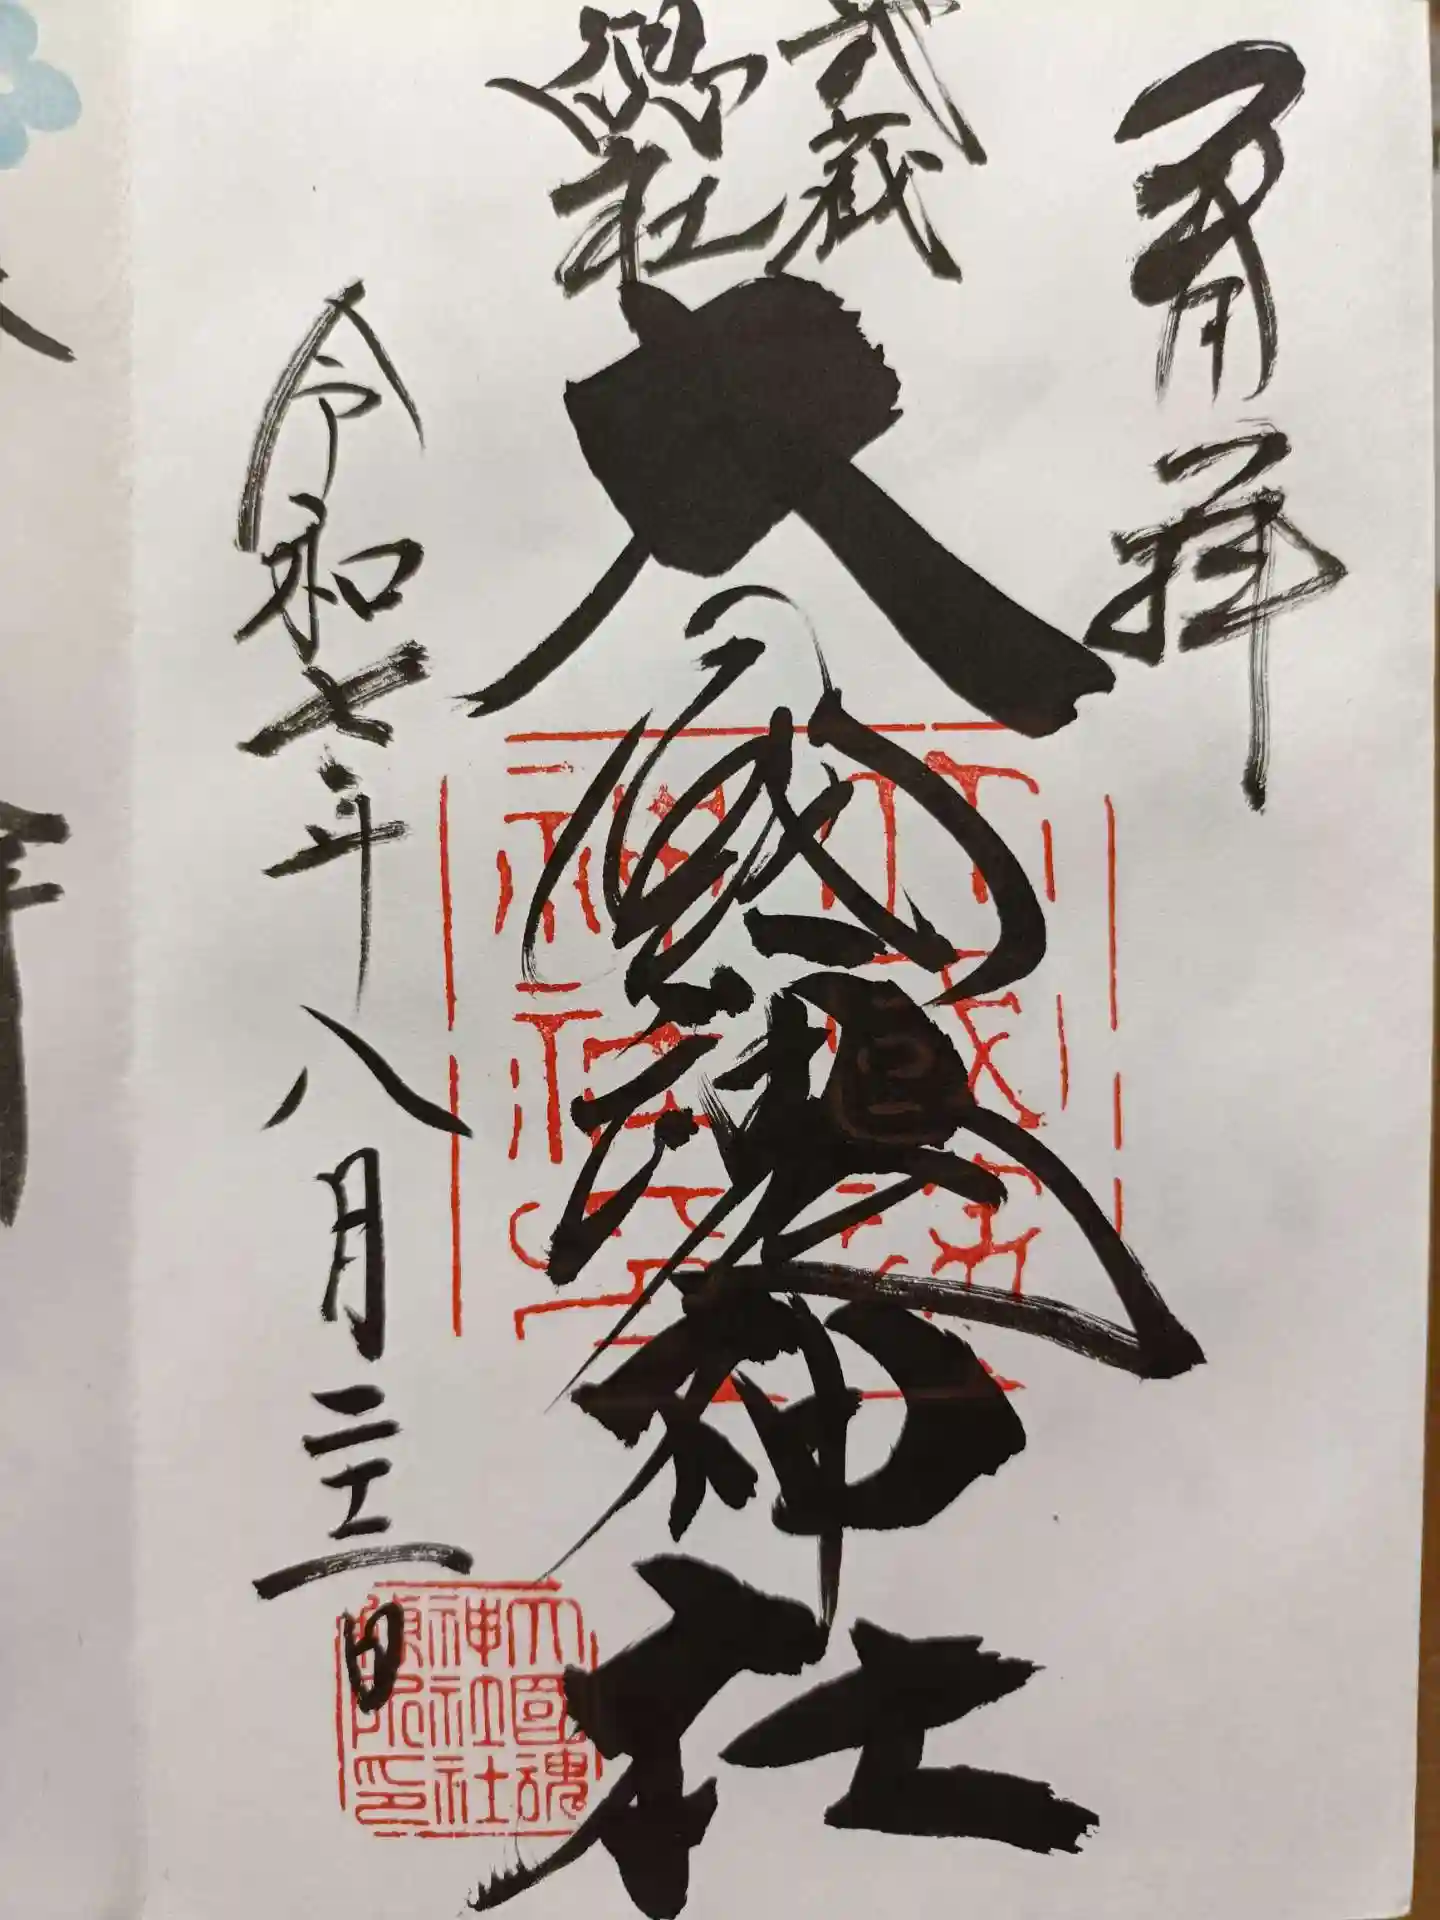 拝
武蔵
總社
大國魂神社
令和七年八月二十二日
大國魂
神社社
務所印